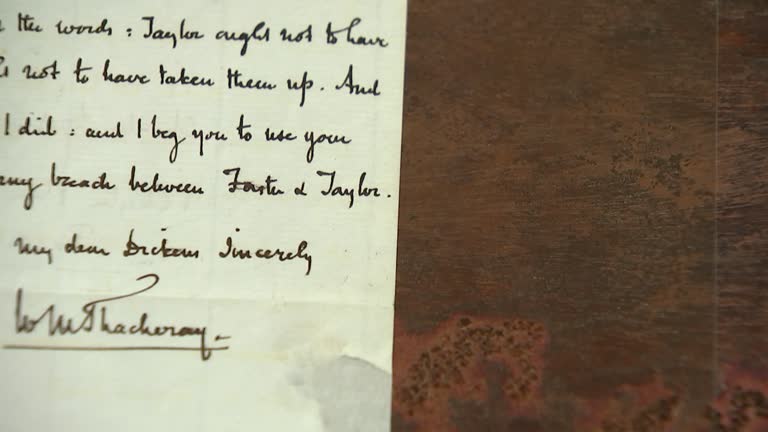 the words : Taylor ought not to have
not to have taken them up. And
I did : and I beg you to use your
any breach between Forster & Taylor.
my dear Dickens Sincerely
W M Thackeray.